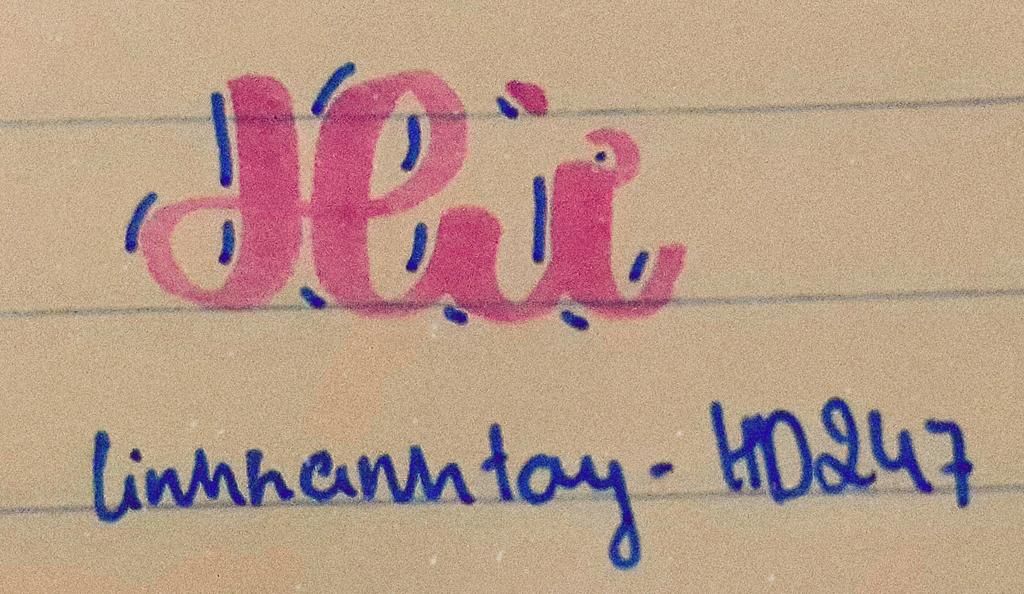 Hi
linhhanhtay - HD247